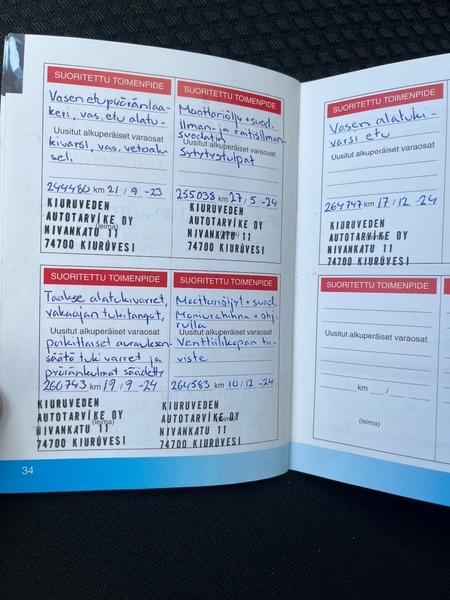 SUORITETTU TOIMENPIDE
Vasen etupyöränlaa-
keri, vas. etu alatu-
Uusitut alkuperäiset varaosat
kivarsi, vas. vetoak-
seli
244480 km 21/9 -23
KIURUVEDEN
AUTOTARVIKE OY
(leima)
NIVANKATU 11
74700 KIURUVESI
SUORITETTU TOIMENPIDE
Moottoriöljy + suod.
Ilman- ja raitisilman-
suodatin
Uusitut alkuperäiset varaosat
Sytytystulpat
255038 km 27/5 -24
KIURUVEDEN
AUTOTARVIKE OY
NIVANKATU 11
74700 KIURUVESI
SUORITETTU TOIMENPIDE
Taakse alatukivarret,
vakaajan tukitangot,
Uusitut alkuperäiset varaosat
poikittaiset aurauksen-
säätö tukivarret ja
pyöränkulmat säädetty
260743 km 19/9 -24
KIURUVEDEN
AUTOTARVIKE OY
(leima)
NIVANKATU 11
74700 KIURUVESI
SUORITETTU TOIMENPIDE
Moottoriöljyt + suod.
Moniurahihna + ohj.
rulla
Uusitut alkuperäiset varaosat
Venttiilikopan tii-
viste
264583 km 10/12 -24
KIURUVEDEN
AUTOTARVIKE OY
NIVANKATU 11
74700 KIURUVESI
34
SUORITETTU TOIMENPIDE
Vasen alatuki-
varsi etu
Uusitut alkuperäiset varaosat
264747 km 17/12 -24
KIURUVEDEN
AUTOTARVIKE OY
NIVANKATU 11
74700 KIURUVESI
SUORITETTU TOIMENPIDE
Uusitut alkuperäiset varaosat
km / -
(leima)